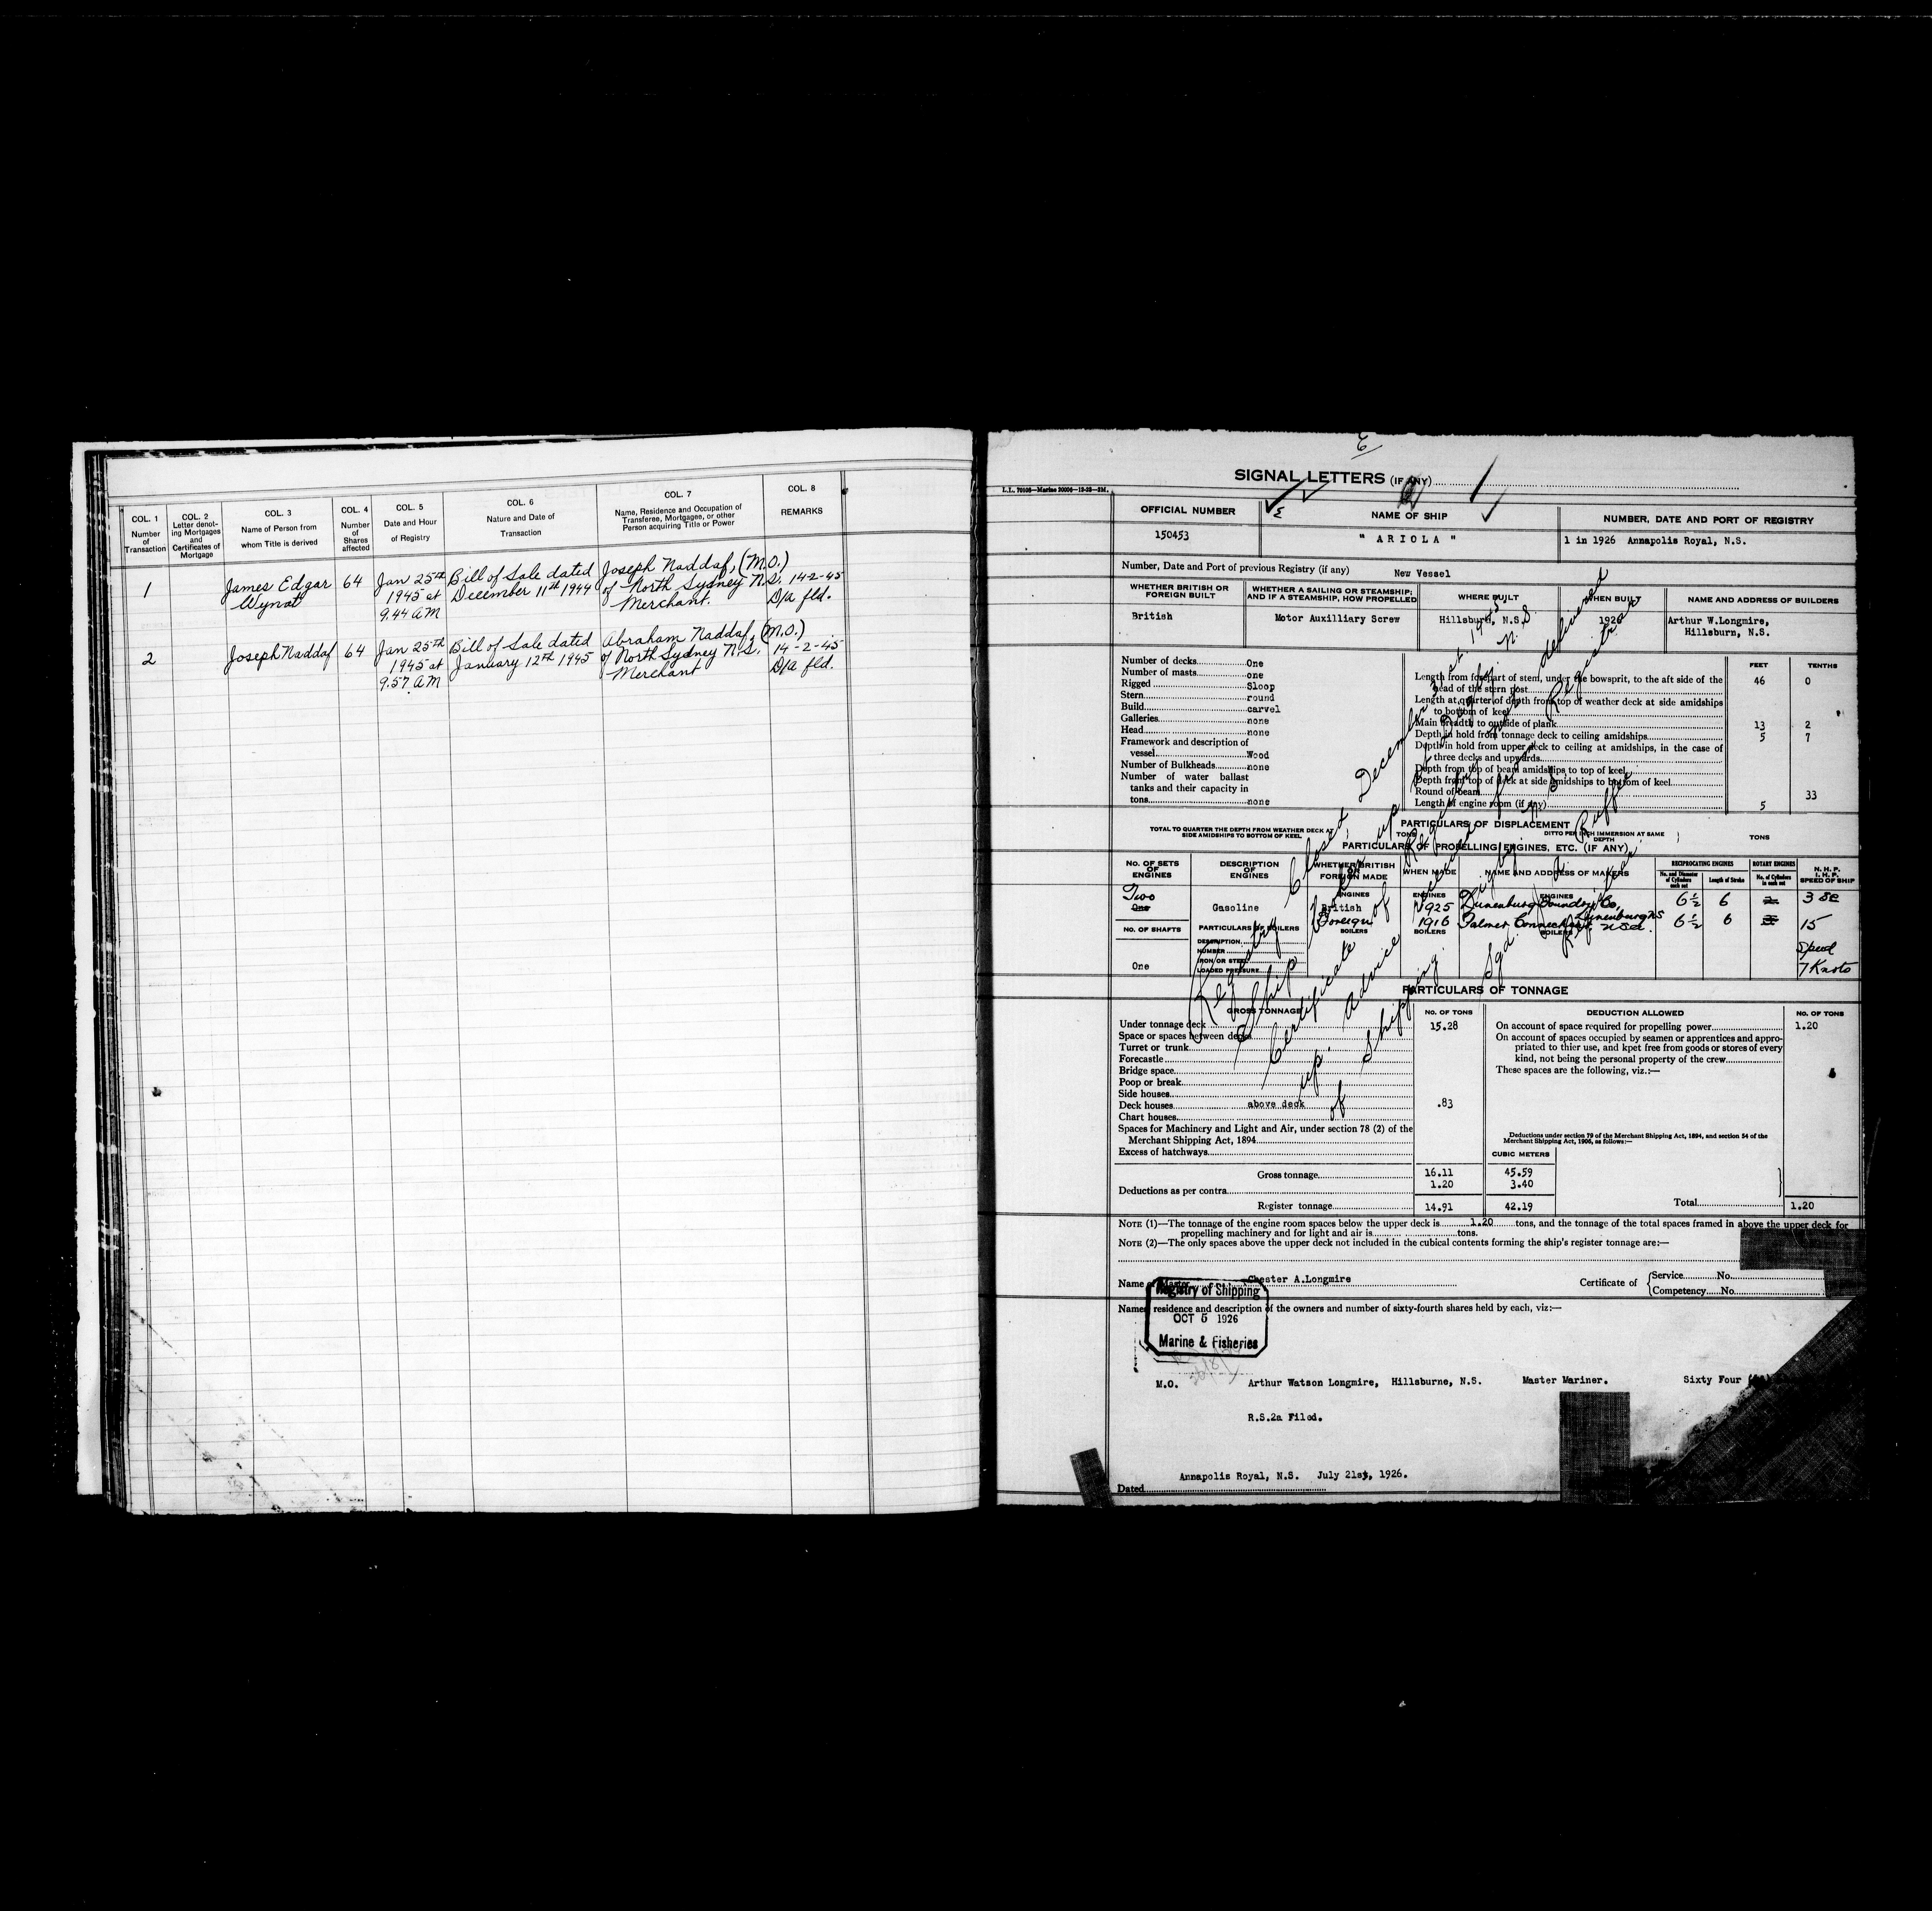 COL. 1
Number
of
Transaction
COL. 2
Letter denot-
ing Mortgages
and
Certificates of
Mortgage
COL. 3
Name of Person from
whom Title is derived
COL. 4
Number
of
Shares
affected
COL. 5
Date and Hour
of Registry
COL. 6
Nature and Date of
Transaction
COL. 7
Name, Residence and Occupation of
Transferee, Mortgagee, or other
Person acquiring Title or Power
COL. 8
REMARKS
1
James Edgar
64
Jan 25th
1945 at
9.44 AM
Bill of Sale dated
December 11th 1944
Joseph Naddaf, (M.O.)
of North Sydney N.S.
Merchant.
14-2-45
D/a fld.
2
Joseph Naddaf
64
Jan 25th
1945 at
9.57 AM
Bill of Sale dated
January 12th 1945
Abraham Naddaf, (M.O.)
of North Sydney N.S.
Merchant
14-2-45
D/a fld.
SIGNAL LETTERS (IF ANY)
OFFICIAL NUMBER
NAME OF SHIP
NUMBER, DATE AND PORT OF REGISTRY
150453
" ARIOLA "
1 in 1926 Annapolis Royal, N.S.
Number, Date and Port of previous Registry (if any) New Vessel
WHETHER BRITISH OR
FOREIGN BUILT
WHETHER A SAILING OR STEAMSHIP;
AND IF A STEAMSHIP, HOW PROPELLED
WHERE BUILT
WHEN BUILT
NAME AND ADDRESS OF BUILDERS
British
Motor Auxilliary Screw
Hillsburn, N.S.
1926
Arthur W.Longmire,
Hillsburn, N.S.
Number of decks One
Number of masts one
Rigged Sloop
Stern round
Build carvel
Galleries none
Head none
Framework and description of
vessel Wood
Number of Bulkheads none
Number of water ballast
tanks and their capacity in
tons none
FEET TENTHS
Length from forepart of stem, under the bowsprit, to the aft side of the
head of the stern post 46 0
Length at quarter of depth from top of weather deck at side amidships
to bottom of keel
Main breadth to outside of plank 13 2
Depth in hold from tonnage deck to ceiling amidships 5 7
Depth in hold from upper deck to ceiling at amidships, in the case of
three decks and upwards
Depth from top of beam amidships to top of keel
Depth from top of deck at side amidships to bottom of keel
Round of beam 33
Length of engine room (if any) 5
PARTICULARS OF DISPLACEMENT
TOTAL TO QUARTER THE DEPTH FROM WEATHER DECK AT
SIDE AMIDSHIPS TO BOTTOM OF KEEL
TONS
DITTO PER INCH IMMERSION AT SAME
DEPTH
TONS
PARTICULARS OF PROPELLING ENGINES, ETC. (IF ANY)
No. OF SETS
OF
ENGINES
DESCRIPTION
OF
ENGINES
WHETHER BRITISH
OR
FOREIGN MADE
WHEN MADE
NAME AND ADDRESS OF MAKERS
RECIPROCATING ENGINES
No. and Diameter
of Cylinders
each set
Length of Stroke
ROTARY ENGINES
No. of Cylinders
in each set
N. H. P.
I. H. P.
SPEED OF SHIP
Two
One
Gasoline
ENGINES
British
Foreign
BOILERS
ENGINES
1925
1916
BOILERS
ENGINES
Lunenburg Foundry Co,
Lunenburg NS
BOILERS
6½ 6
6½ 6
15
Speed
7 Knots
NO. OF SHAFTS
One
PARTICULARS OF BOILERS
DESCRIPTION
NUMBER
IRON OR STEEL
LOADED PRESSURE
PARTICULARS OF TONNAGE
GROSS TONNAGE
NO. OF TONS
DEDUCTION ALLOWED
NO. OF TONS
Under tonnage deck 15.28
Space or spaces between decks
Turret or trunk
Forecastle
Bridge space
Poop or break
Side houses
Deck houses above deck .83
Chart houses
Spaces for Machinery and Light and Air, under section 78 (2) of the
Merchant Shipping Act, 1894
Excess of hatchways
CUBIC METERS
Gross tonnage 16.11 45.59
Deductions as per contra 1.20 3.40
Register tonnage 14.91 42.19
On account of space required for propelling power 1.20
On account of spaces occupied by seamen or apprentices and appro-
priated to thier use, and kpet free from goods or stores of every
kind, not being the personal property of the crew
These spaces are the following, viz.:—
Deductions under section 79 of the Merchant Shipping Act, 1894, and section 54 of the
Merchant Shipping Act, 1906, as follows:—
Total 1.20
NOTE (1)—The tonnage of the engine room spaces below the upper deck is 1.20 tons, and the tonnage of the total spaces framed in above the upper deck for
propelling machinery and for light and air is tons.
NOTE (2)—The only spaces above the upper deck not included in the cubical contents forming the ship's register tonnage are:—
Name of Master Chester A.Longmire
Certificate of
Service No.
Competency No.
Names, residence and description of the owners and number of sixty-fourth shares held by each, viz:—
Registry of Shipping
OCT 5 1926
Marine & Fisheries
M.O. Arthur Watson Longmire, Hillsburne, N.S. Master Mariner. Sixty Four
R.S.2a Filed.
Annapolis Royal, N.S. July 21st, 1926.
Dated
Registry Closed December
Certificate of Registry
Advice
of Shipping
Registrar